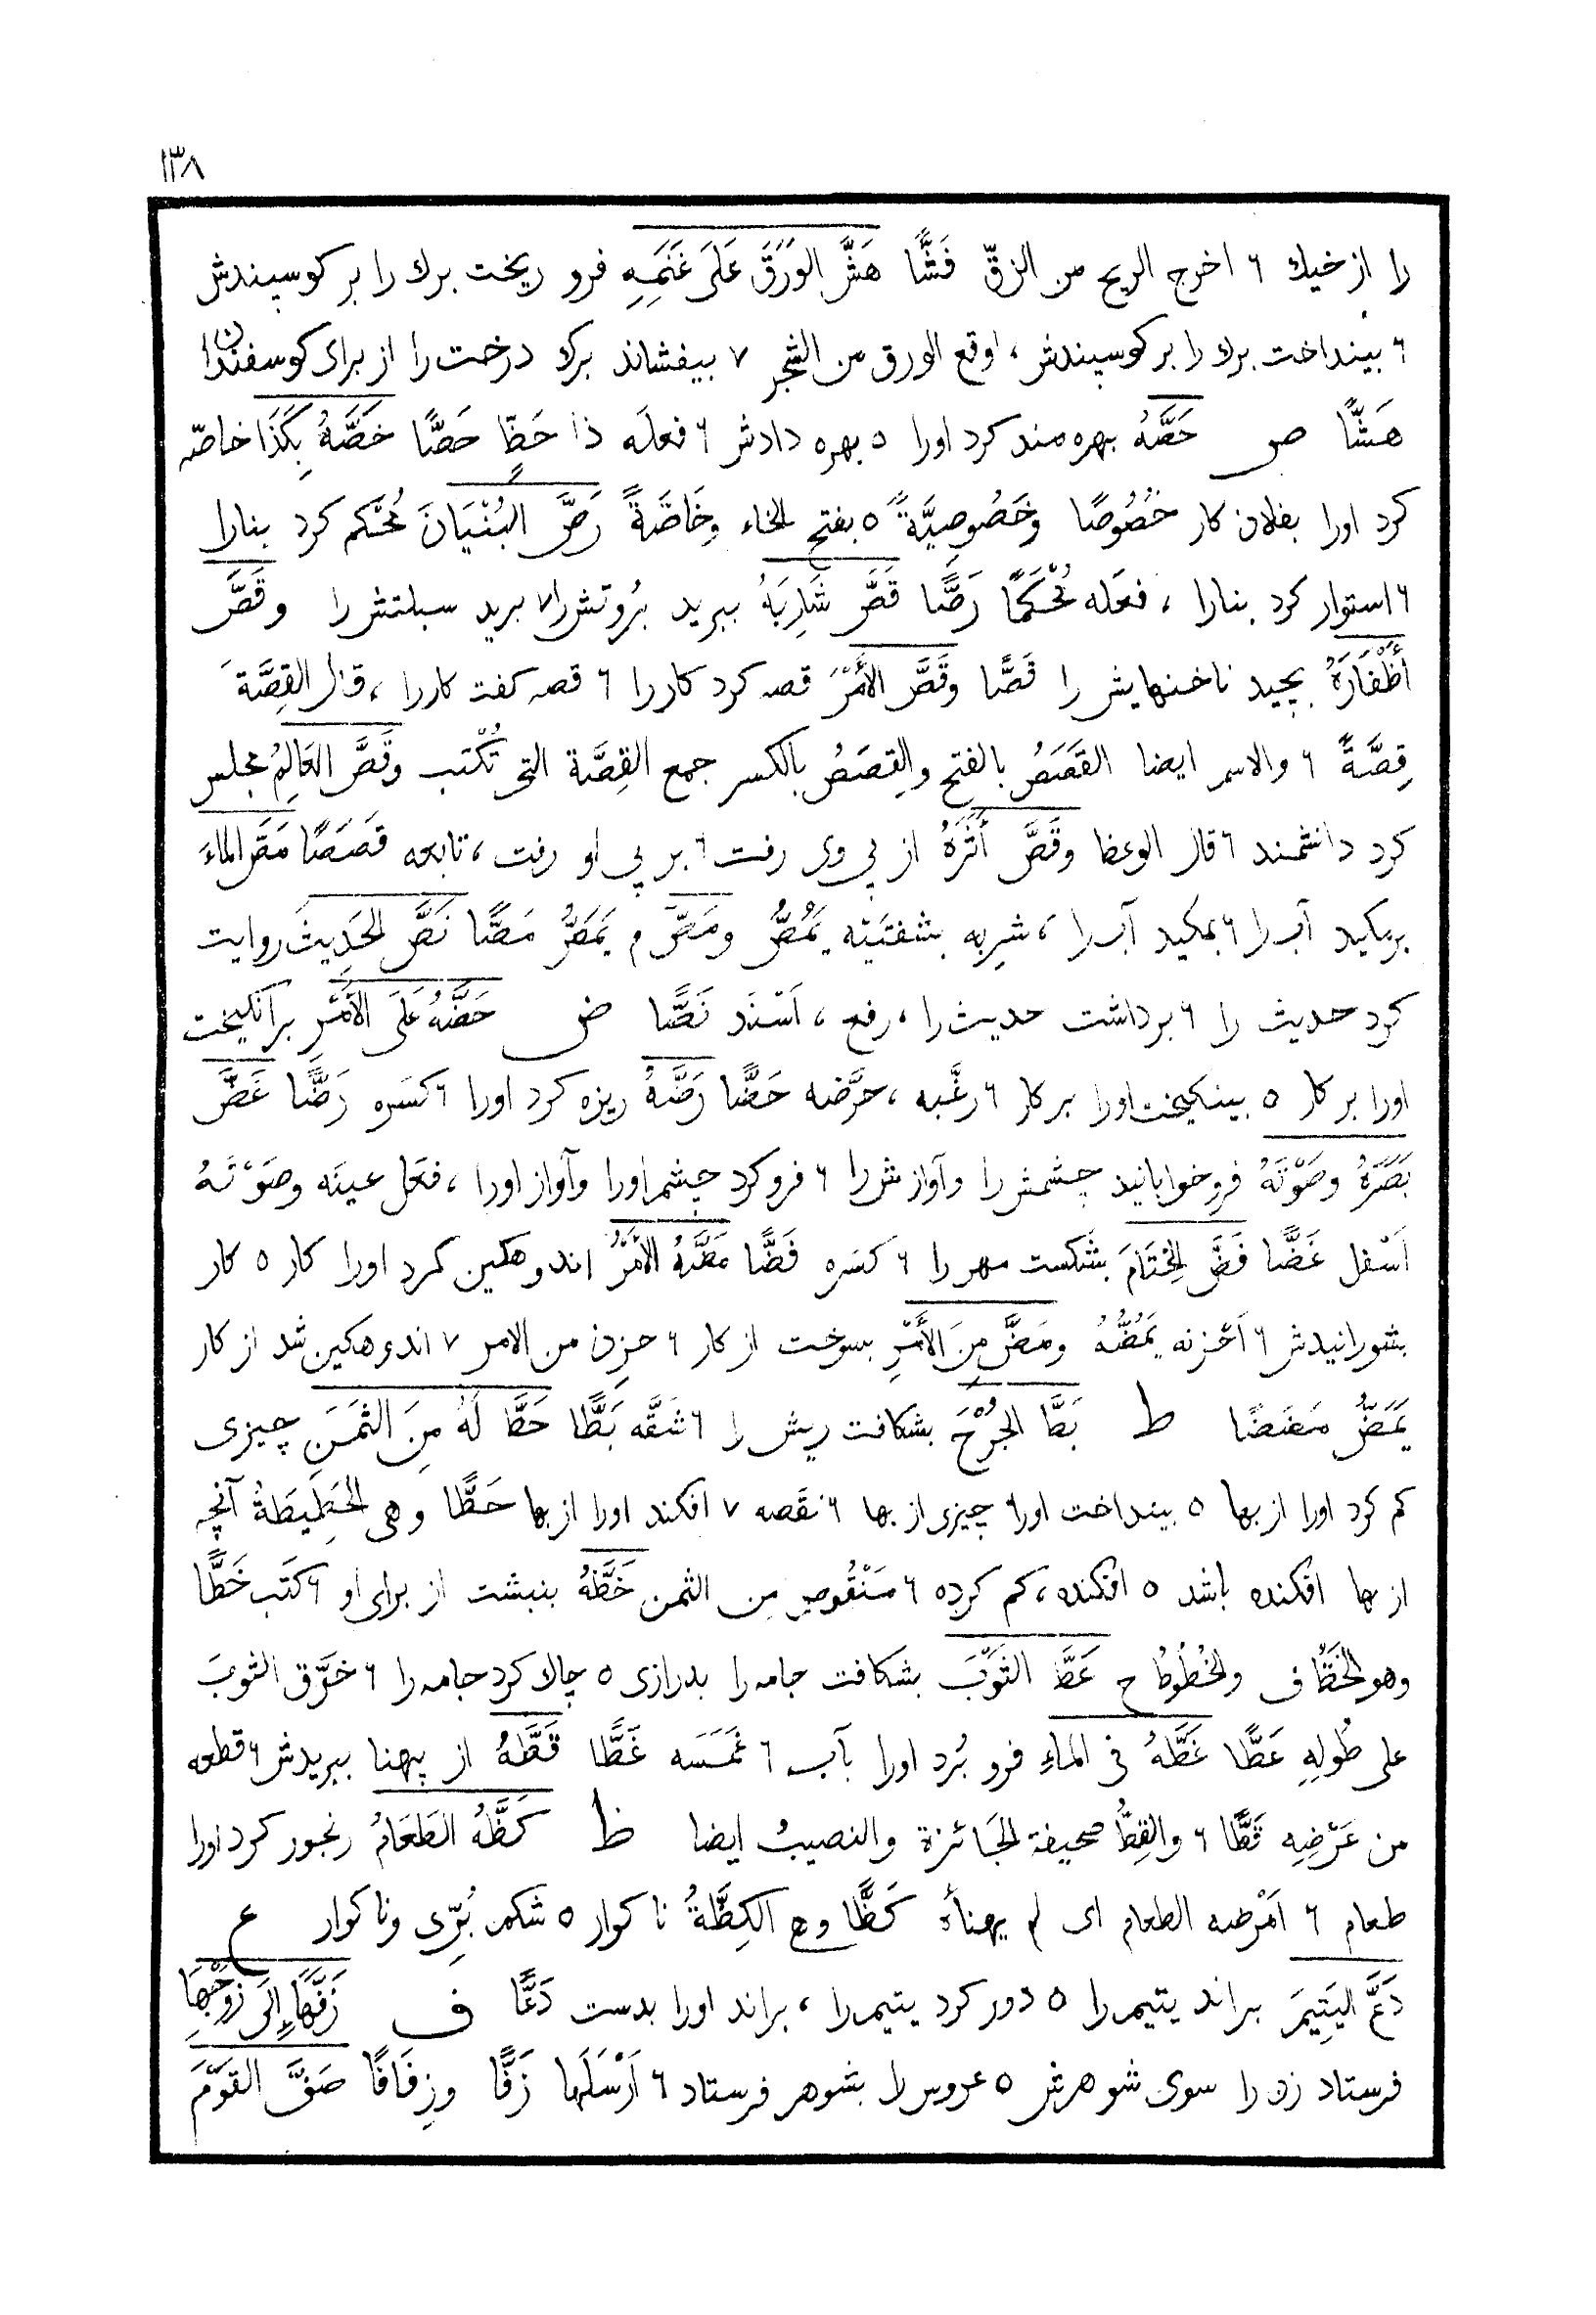 ١٣٨
را از خيك ٦ اخرج الريح من الزقّ فَشًّا هَشَّ الوَرَقَ عَلَى غَنَمِهِ فرو ريخت برك را بر كوسپندش
٦ بينداخت برك را بر كوسپندش ، اوقع الورق من الشجر ٧ بيفشاند برك درخت را از براى كوسفندان
هَشًّا ص حَصَّهُ بهره مند كرد اورا ٥ بهره دادش ٦ فعلَه ذا حَظٍّ حَصًّا خَصَّهُ بِكَذَا خاصّه
كرد اورا بفلان كار خُصُوصًا وخَصُوصِيَّةً ٥ بفتح الخاء وخَاصَّةً رَصَّ البُنْيَانَ مُحْكم كرد بنارا
٦ استوار كرد بنارا ، فعَله مُحْكَمًا رَصًّا قَصَّ شَارِبَهُ ببريد بُروتش را ٧ بريد سبلتش را وقَصَّ
أَظْفَارَهُ بچيد ناخنهايش را قَصًّا وقَصَّ الأَمْرَ قصه كرد كار را ٦ قصه كفت كاررا ، قال القِصَّةَ
قِصَّةً ٦ والاسم ايضا القَصَصُ بالفتح والقِصَصُ بالكسر جمع القِصَّة التى تُكْتب وقَصَّ العَالِمُ مجلس
كرد دانشمند ٦ قال الوعظ وقَصَّ أَثَرَهُ از پى وى رفت ٦ بر پى او رفت ، تابعه قَصَصًا مَصَّ الماءَ
برمكيد آب را ٦ بمكيد آب را ، شربه بشفتَيْه يَمُصُّ ومَصَّ م يَمَصُّ مَصًّا نَصَّ الحَدِيثَ روايت
كرد حديث را ٦ برداشت حديث را ، رفع ، اَسْنَد نَصًّا ض حَضَّهُ عَلَى الأَمْرِ برانكيخت
اورا بر كار ٥ بينكيخت اورا بر كار ٦ رغَّبه ، حرَّضه حَضًّا رَضَّهُ ريزه كرد اورا ٦ كسَره رَضًّا غَضَّ
بَصَرَهُ وصَوْتَهُ فرو خوابانيد چشمش را وآوازش را ٦ فرو كرد چشم اورا وآواز اورا ، فعَل عينَه وصَوْتَهُ
اَسْفل غَضًّا فَضَّ الخِتَامَ بشكست مهر را ٦ كسَره فَضًّا مَضَّهُ الأَمْرُ اندوهكين كرد اورا كار ٥ كار
بشورانيدش ٦ اَحْزنه يَمُضُّهُ ومَضَّ مِنَ الأَمْرِ بسوخت از كار ٦ حزِن من الامر ٧ اندوهكين شد از كار
يَمَضُّ مَضَضًا ط بَطَّ الجُرْحَ بشكافت ريش را ٦ شقَّه بَطًّا حَطَّ لَهُ مِنَ الثَمَنِ چيزى
كم كرد اورا از بها ٥ بينداخت اورا چيزى از بها ٦ نقَصه ٧ افكند اورا از بها حَطًّا وهى الحَطِيطَةُ آنچه
از بها افكنده باشد ٥ افكنده ، كم كرده ٦ مَنْقُوص من الثمن خَطَّهُ بنبشت از براى او ٦ كتَب خَطًّا
وهو الخَطُّ ف والخُطُوطُ ح عَطَّ الثَوْبَ بشكافت جامه را بدرازى ٥ چاك كرد جامه را ٦ خرَّق الثوبَ
على طُولِهِ عَطًّا غَطَّهُ فى الماءِ فرو بُرد اورا بآب ٦ غمَسَه غَطًّا قَطَّهُ از پهنا ببريدش ٦ قطعه
من عَرْضِهِ قَطًّا ٦ والقِطُّ صحيفة الجَائزة والنصيبُ ايضا ظ كَظَّهُ الطَعَامُ رنجور كرد اورا
طعام ٦ اَمْرضه الطعام اى لم يهنأهُ كَظًّا وهى الكِظَّةُ نا كوار ٥ شكم بُرّى ونا كوار ع
دَعَّ اليَتِيمَ براند يتيم را ٥ دور كرد يتيم را ، براند اورا بدست دَعًّا ف زَفَّهَا إِلَى زَوْجِهَا
فرستاد زن را سوى شوهرش ٥ عروس را بشوهر فرستاد ٦ اَرْسَلَها زَفًّا وزِفَافًا صَفَّ القَوْمَ